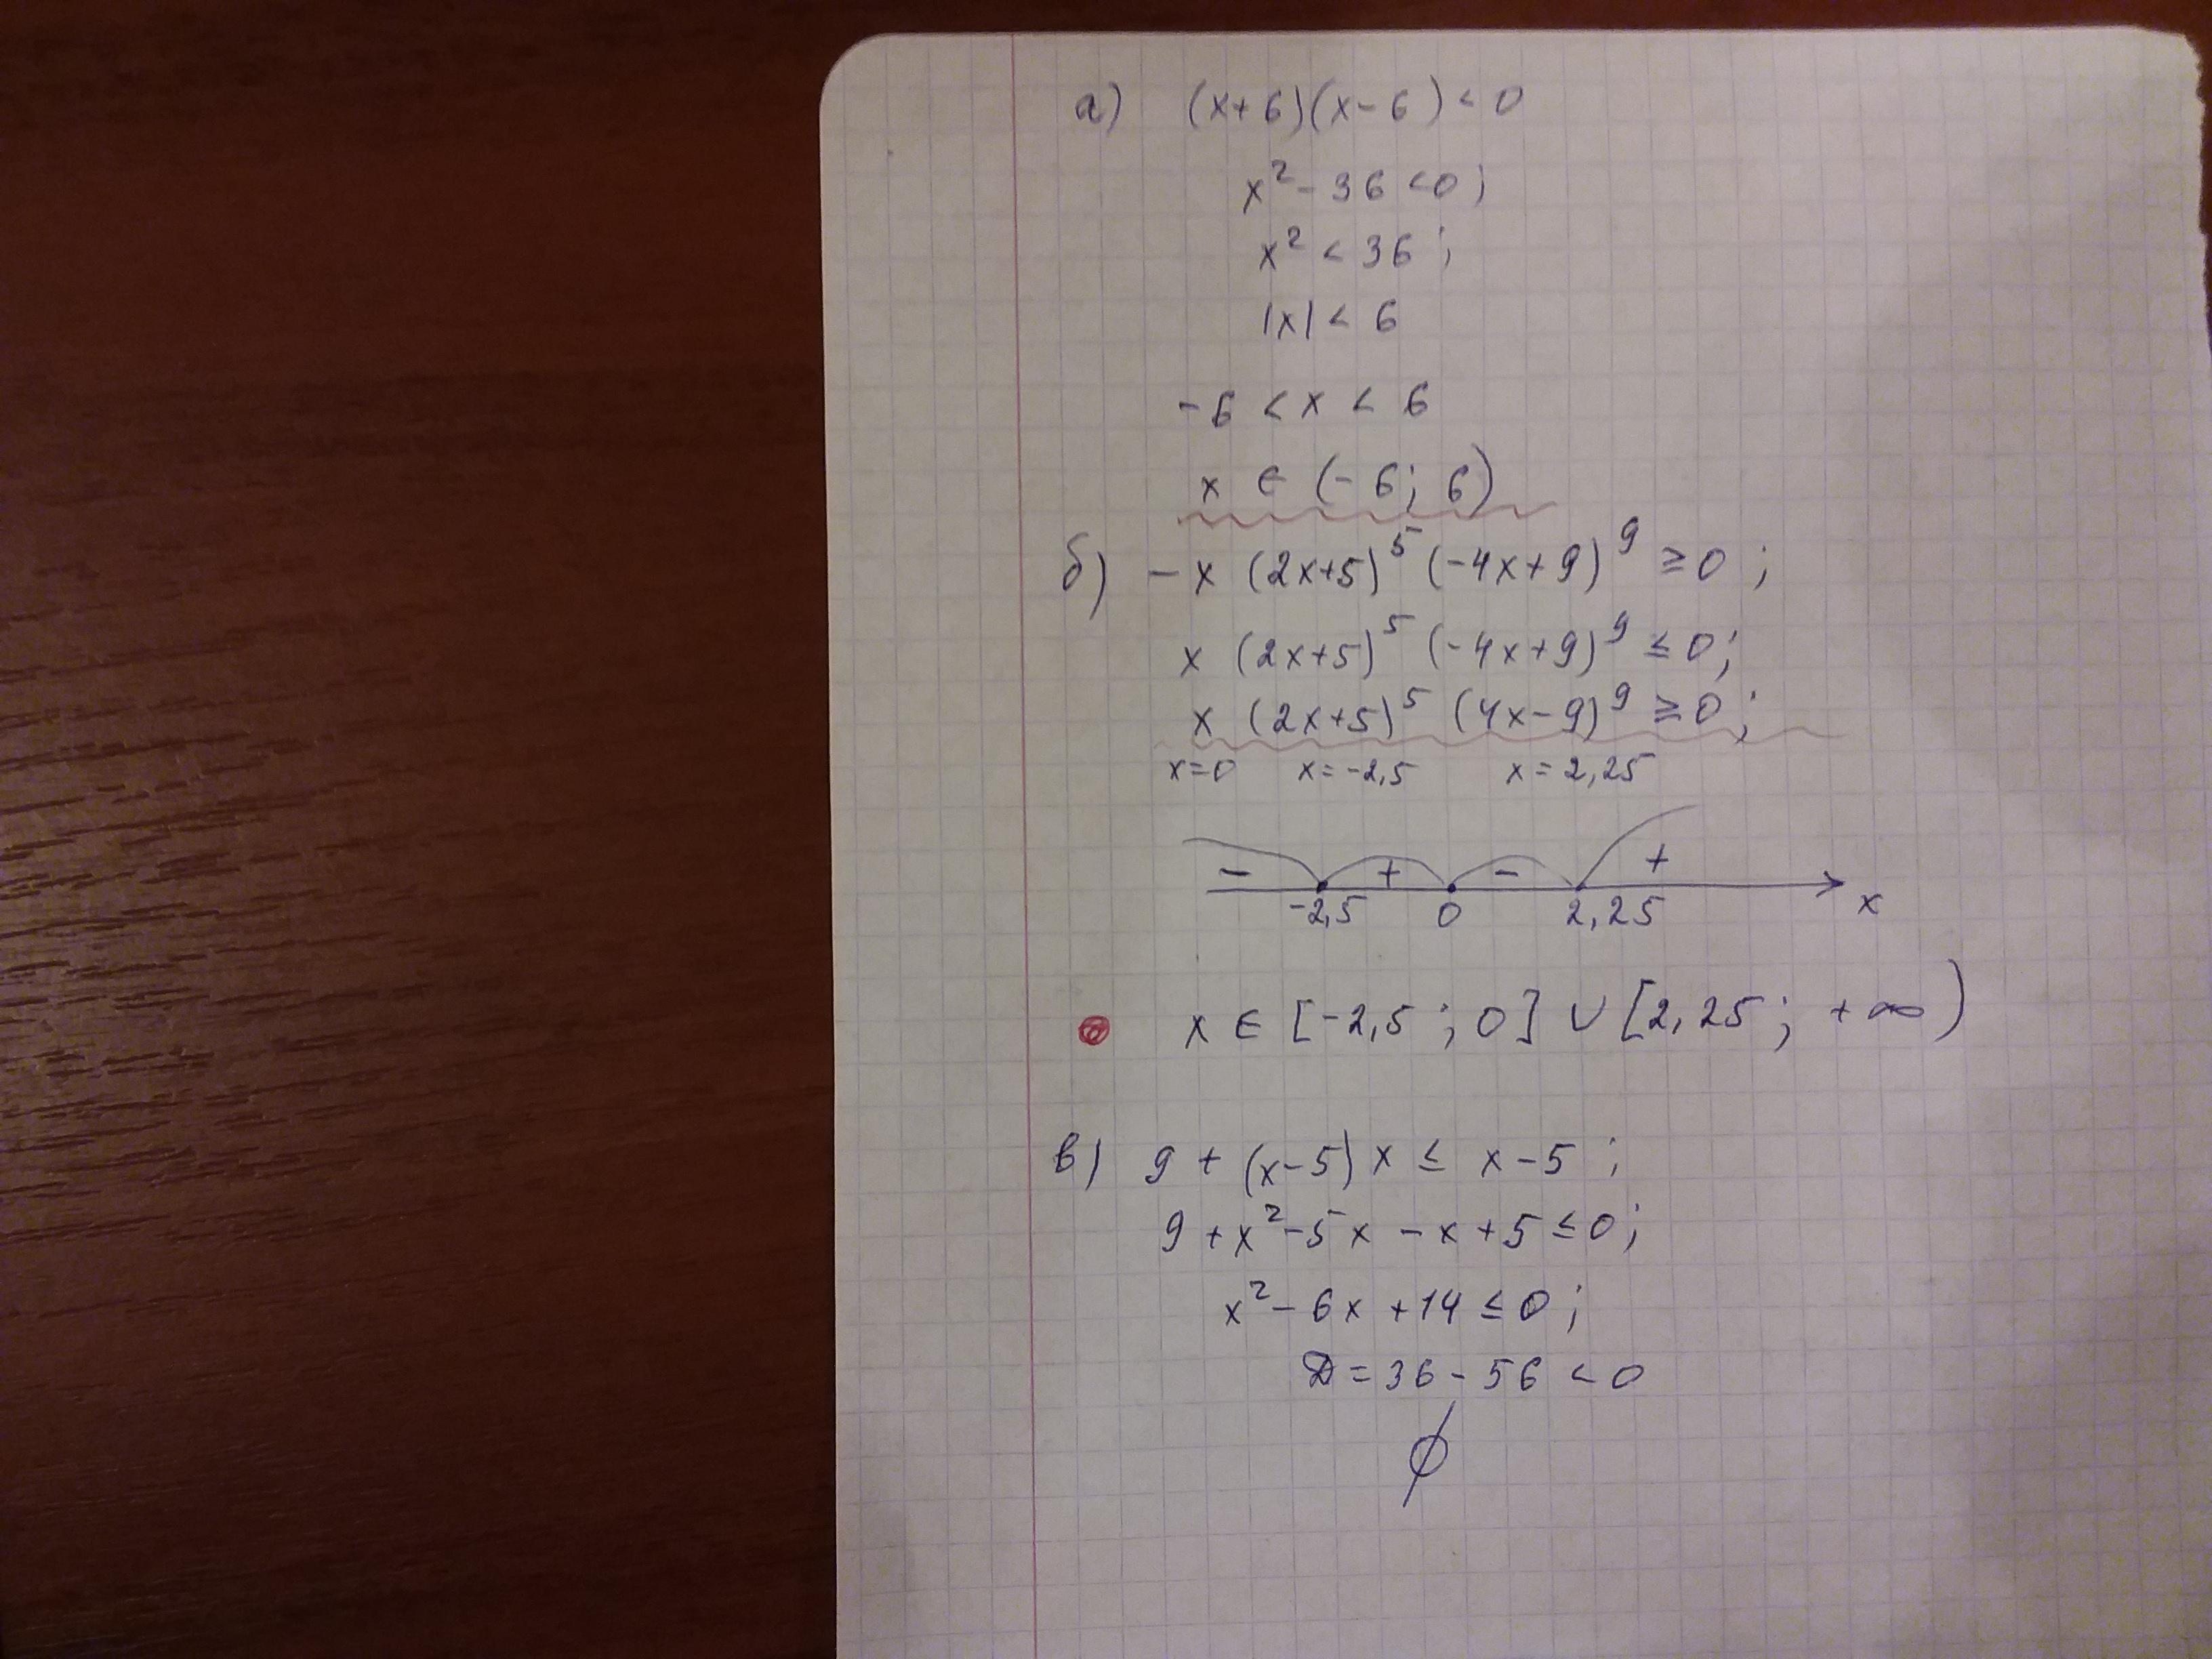 а) (x+6)(x-6) < 0
x² - 36 < 0;
x² < 36;
|x| < 6
-6 < x < 6
x ∈ (-6; 6)
б) -x (2x+5)⁵ (-4x+9)⁹ ≥ 0;
x (2x+5)⁵ (-4x+9)⁹ ≤ 0;
x (2x+5)⁵ (4x-9)⁹ ≥ 0;
x=0 x=-2,5 x=2,25
- + - +
-2,5 0 2,25 x
x ∈ [-2,5; 0] ∪ [2,25; +∞)
в) 9 + (x-5) x ≤ x-5;
9 + x² - 5x - x + 5 ≤ 0;
x² - 6x + 14 ≤ 0;
D = 36 - 56 < 0
∅